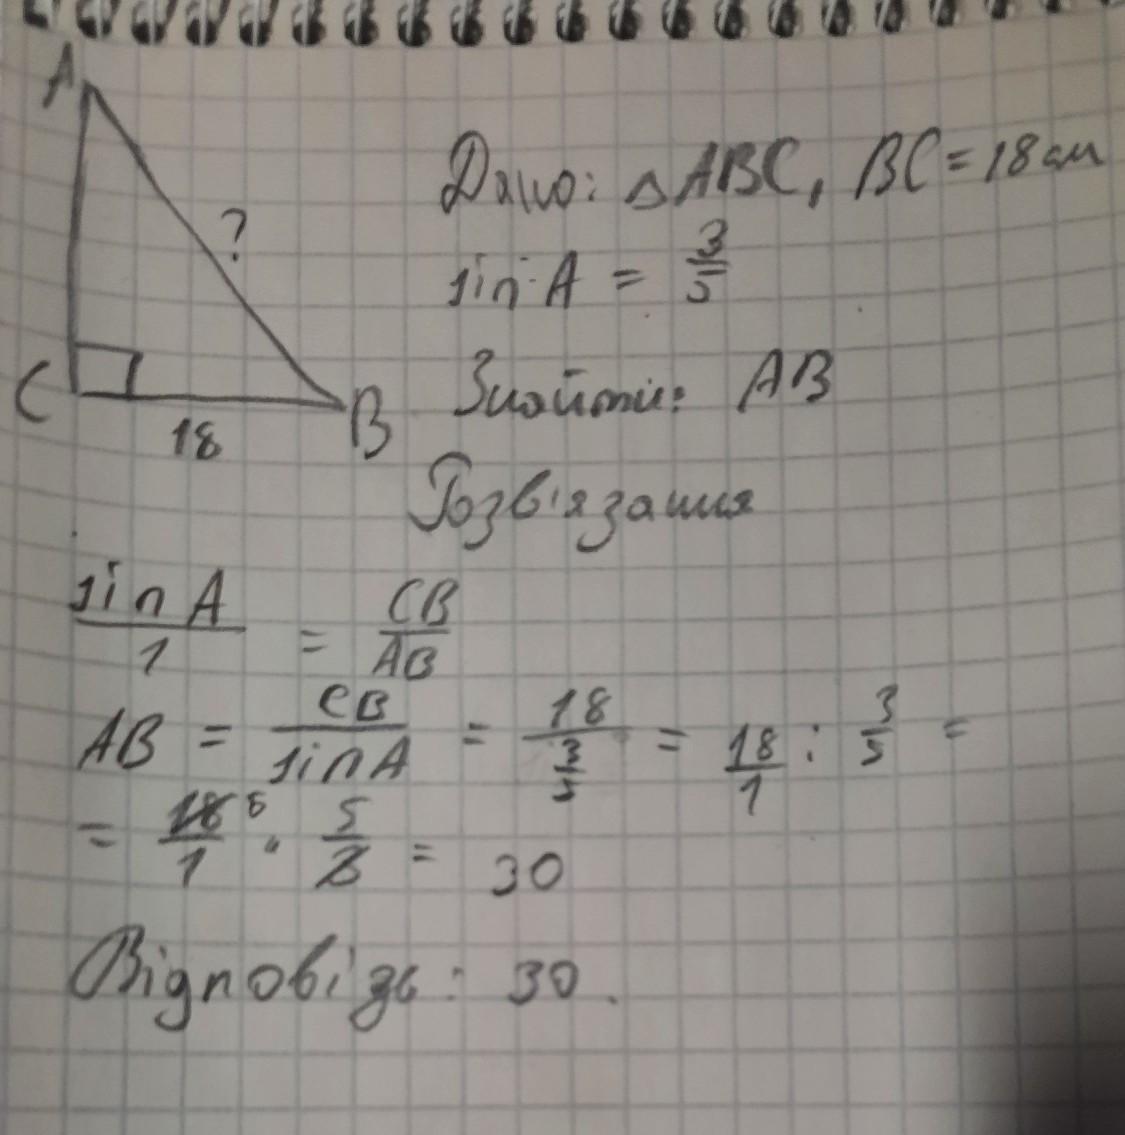 A
?
C
18
B
Дано: △ABC, BC = 18 см
sin A = 3/5
Знайти: AB
Розв'язання
sin A/1 = CB/AB
AB = CB/sin A = 18/(3/5) = 18/1 : 3/5 =
= 18 6/1 · 5/3 = 30
Відповідь: 30.